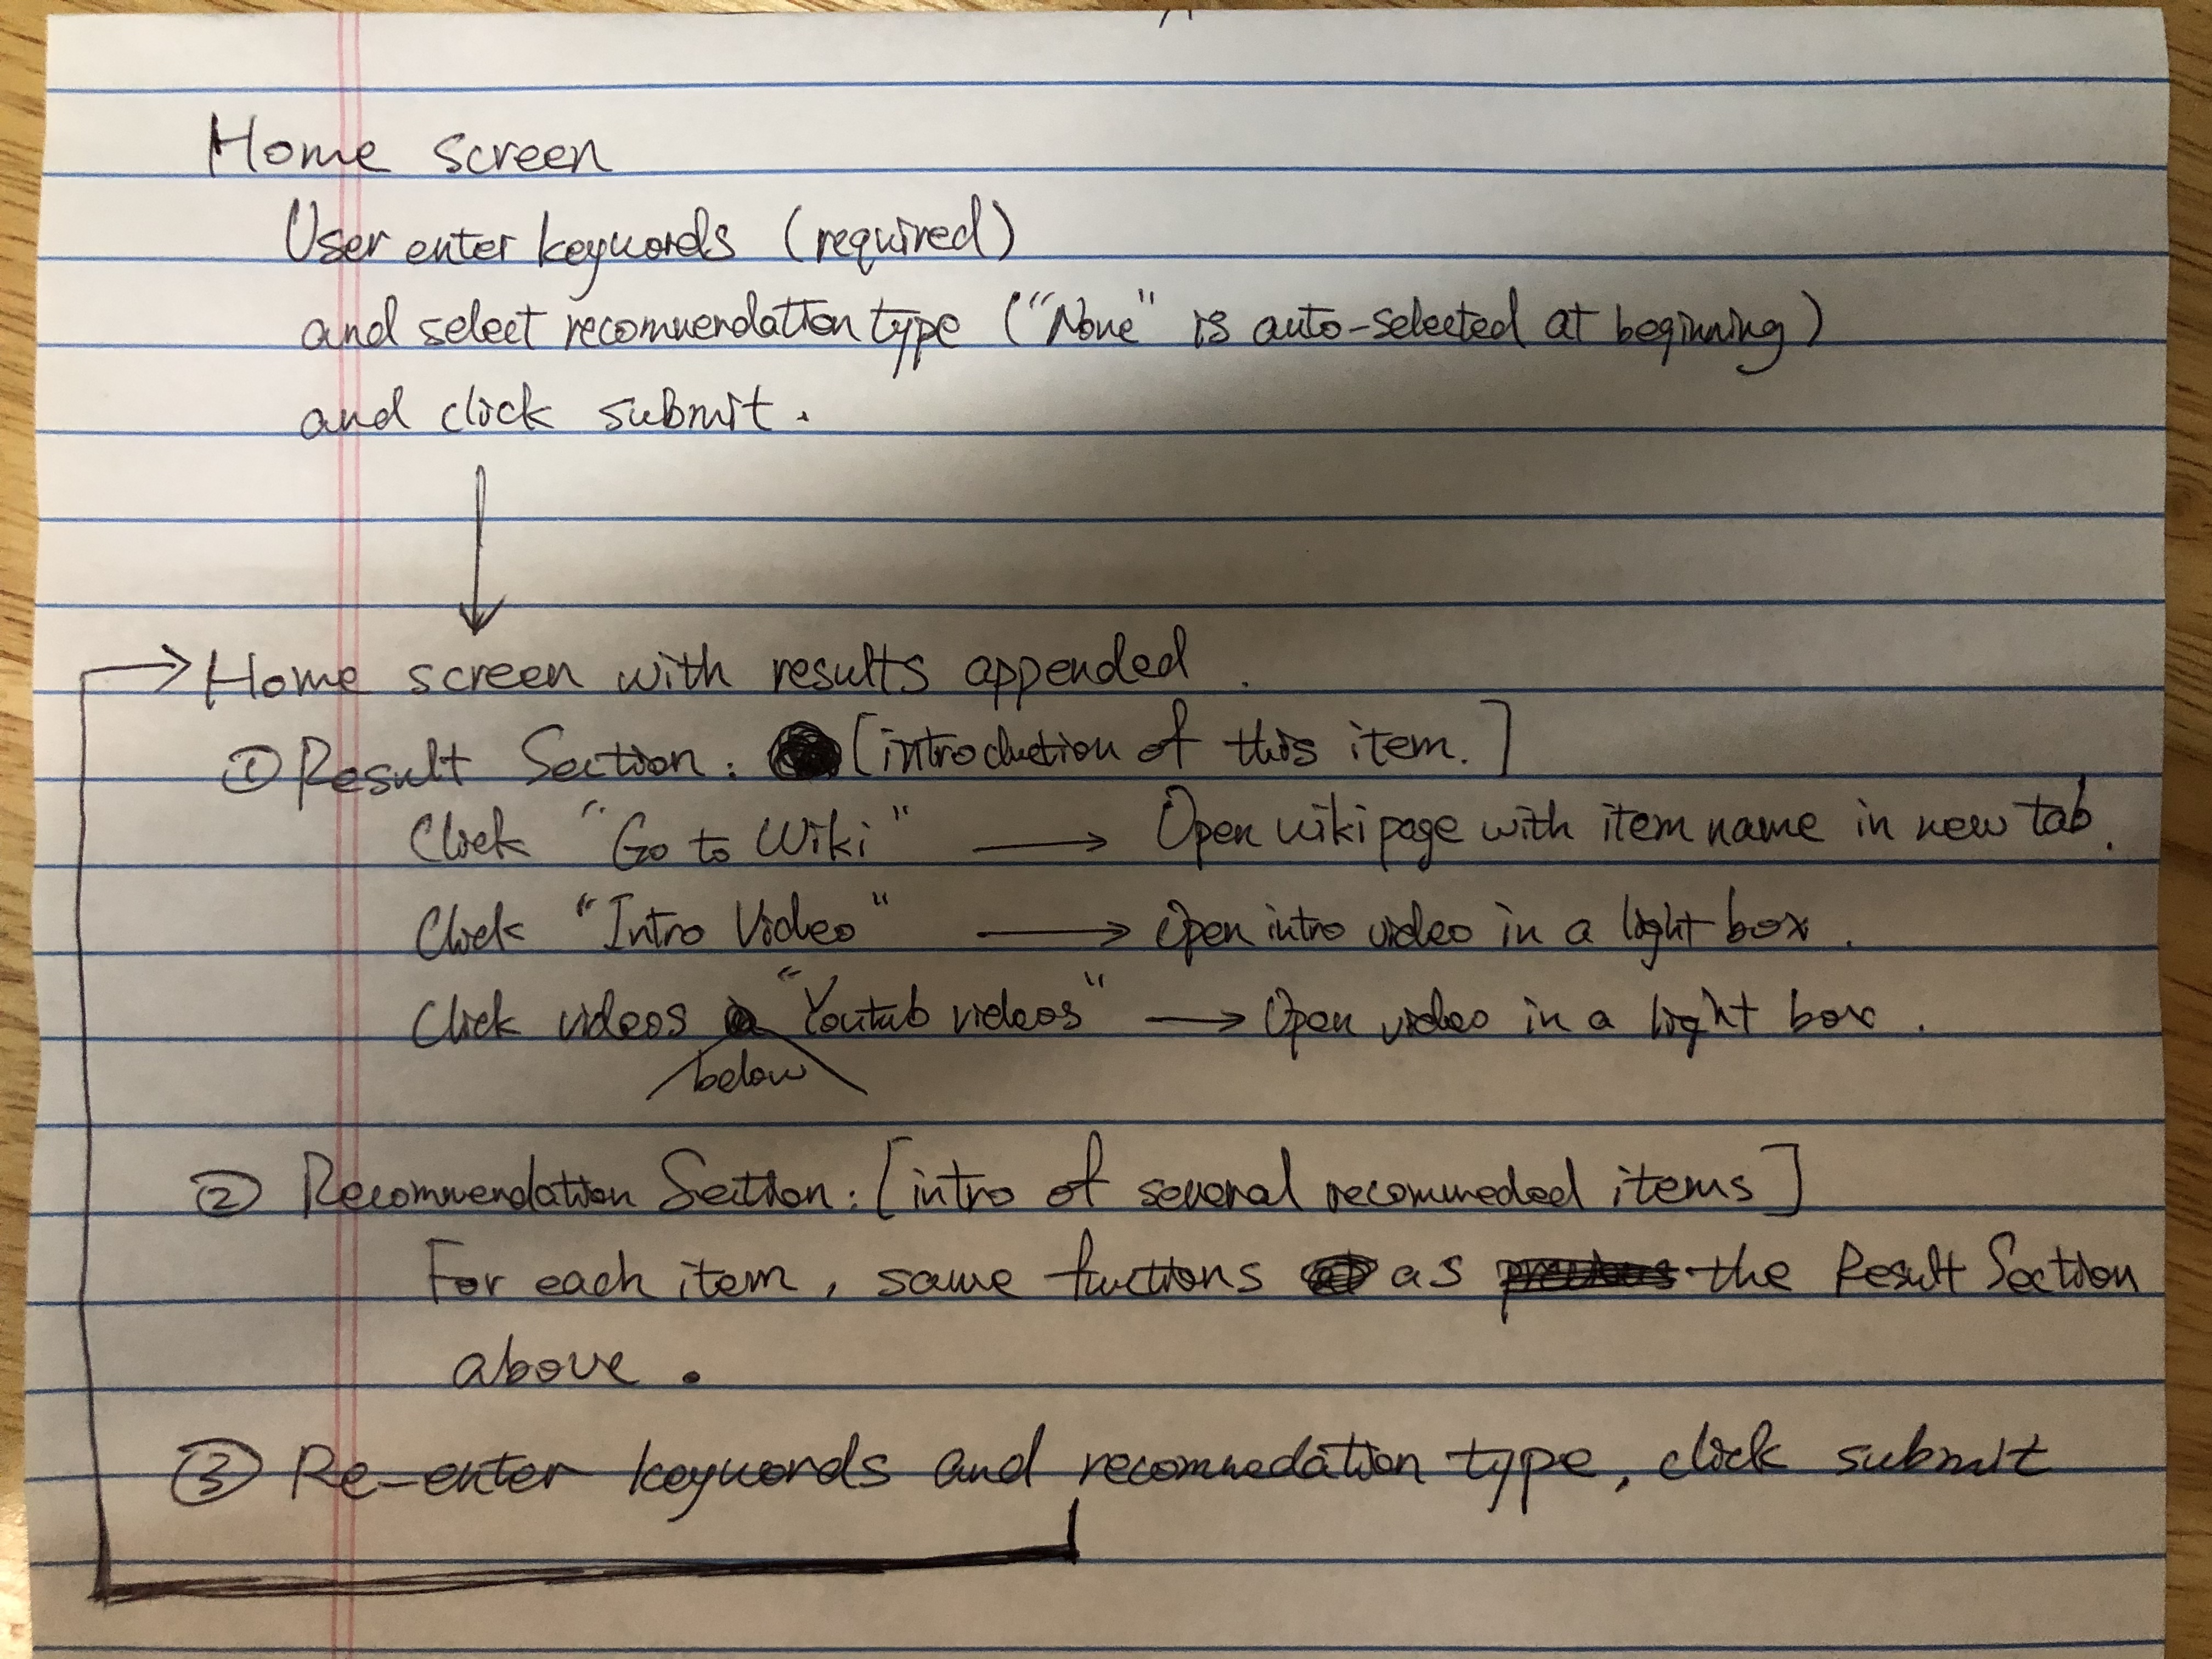 Home screen
User enter keywords (required)
and select recommendation type ("None" is auto-selected at beginning)
and click submit.
Home screen with results appended.
① Result Section: [introduction of this item.]
Click "Go to Wiki" → Open wiki page with item name in new tab.
Click "Intro Video" → Open intro video in a light box.
Click videos "Youtub videos" → Open video in a light box.
below
② Recommendation Section: [intro of several recommeded items]
For each item, same fuctions as the Result Section
above.
③ Re-enter keywords and recommedation type, click submit